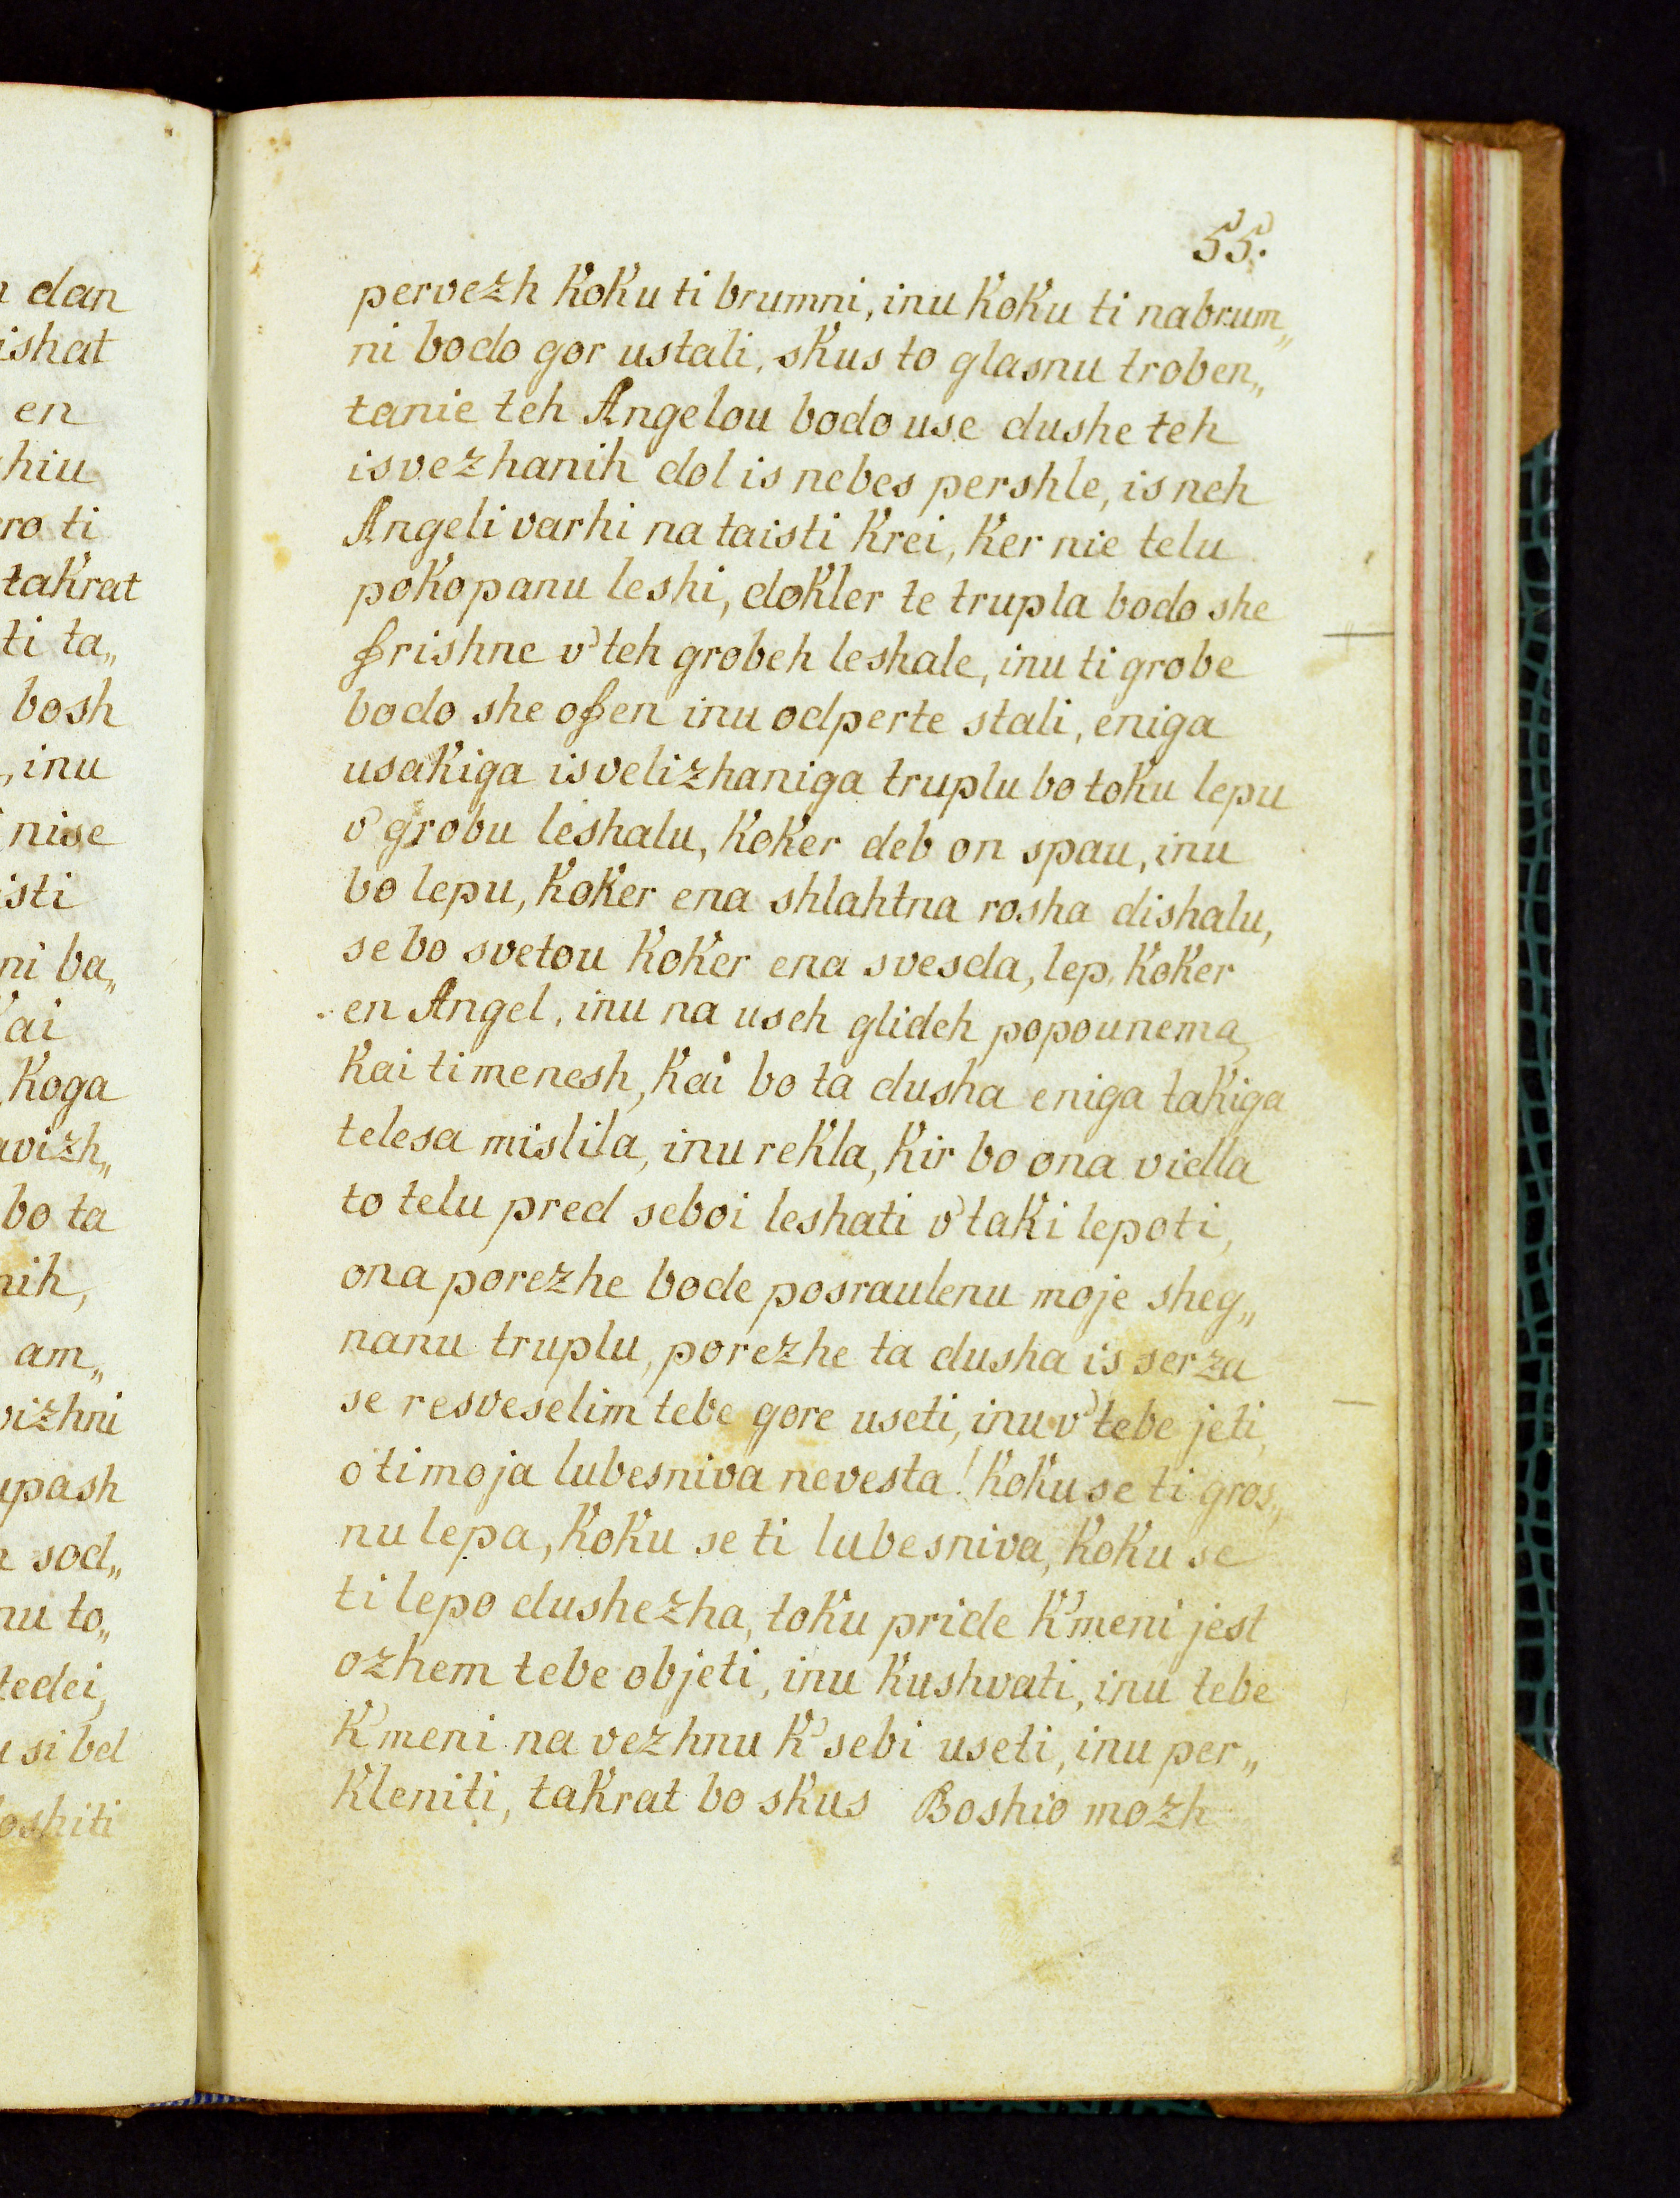 n dan
ishat
en
hiu
ro ti
takrat
ti ta„
bosh
, inu
nise
isti
ni ba„
kai
koga
avizh„
bo ta
nih,
am„
vizhni
upash
n sod„
nu to„
tedei,
u si bd
loshiti
55.
pervezh koku ti brumni, inu koku ti nabrum„
ni bodo gor ustali, skus to glasnu troben„
tanie teh Angelou bodo use dushe teh
isvezhanih dol is nebes pershle, is neh
Angeli varhi na taisti krei, ker nie telu
pokopanu leshi, dokler te trupla bodo she
frishne v'teh grobeh leshale, inu ti grobe
bodo she offen inu odperte stali, eniga
usakiga isvelizhaniga truplu bo toku lepu
v'grobu leshalu, koker deb on spau, inu
bo lepu, koker ena shlahtna rosha dishalu,
se bo svetou koker ena svesda, lep, koker
en Angel, inu na useh glideh popounema,
kai ti menesh, kai bo ta dusha eniga takiga
telesa mislila, inu rekla, kir bo ona vidla
to telu pred seboi leshati v'taki lepoti,
ona porezhe bode posraulenu moje sheg„
nanu truplu, porezhe ta dusha is serza
se resveselim tebe gore useti, inu v'tebe jeti,
o ti moja lubesniva nevesta! koku se ti gros„
nu lepa, koku se ti lubesniva, koku se
ti lepo dushezha, toku pride k'meni jest
ozhem tebe objeti, inu kushvati, inu tebe
k'meni na vezhnu k'sebi useti, inu per„
kleniti, takrat bo skus Boshio mozh